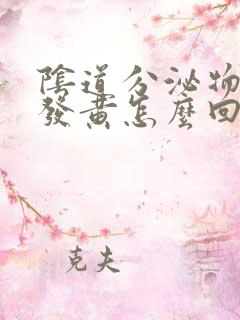 陰道分泌物
發黃怎麼回
克夫